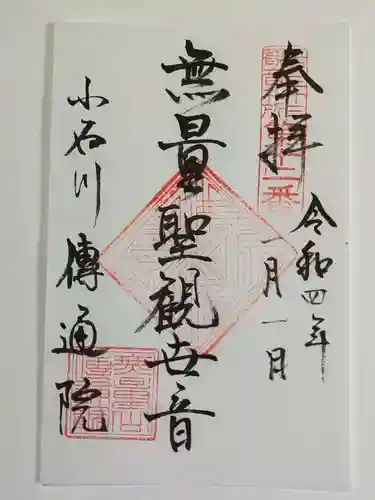 奉拝
令和四年
一月一日
無量聖観世音
小石川 傳通院